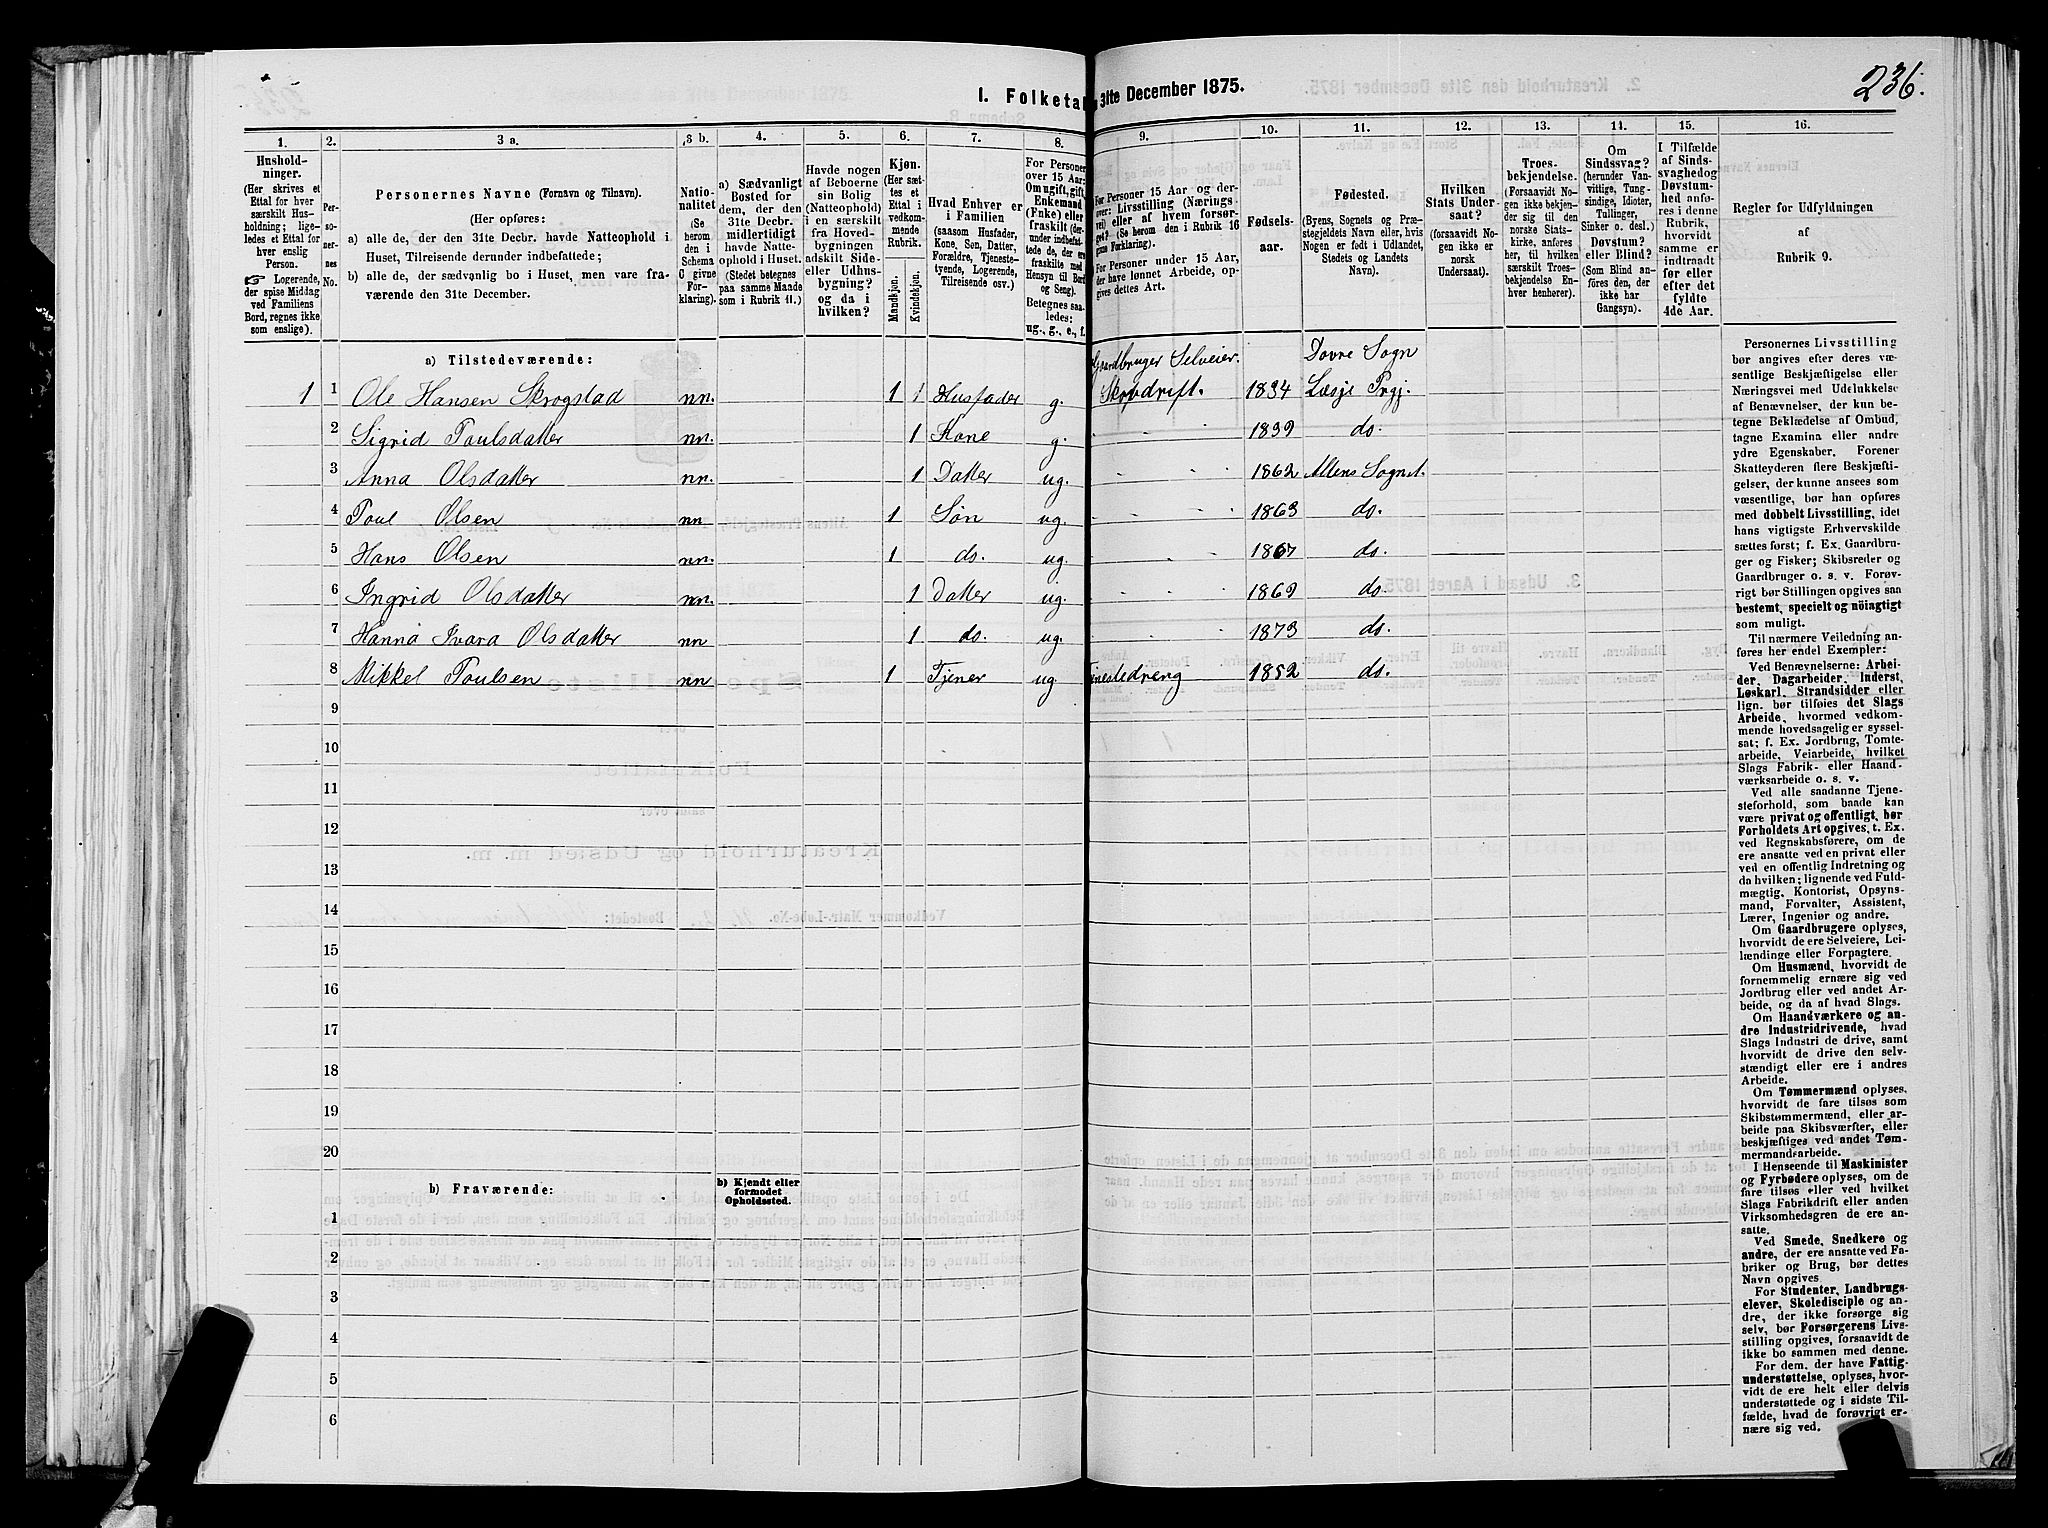 236.
I. Folketal 31te December 1875.
1. 2. 3 a. 3 b. 4. 5. 6. 7. 8. 9. 10. 11. 12. 13. 14. 15. 16.
Hushold-
ninger.
(Her skrives et
Ettal for hver
særskilt Hus-
holdning; lige-
ledes et Ettal for
hver enslig
Person.
☞ Logerende,
der spise Middag
ved Familiens
Bord, regnes ikke
som enslige).
Per-
so-
ner-
nes
No.
Personernes Navne (Fornavn og Tilnavn).
(Her opføres:
a) alle de, der den 31te Decbr. havde Natteophold i
Huset, Tilreisende derunder indbefattede;
b) alle de, der sædvanlig bo i Huset, men vare fra-
værende den 31te December.
Natio-
nalitet
(Se
herom
den i
Schema
C givne
For-
klaring).
a) Sædvanligt
Bosted for
dem, der den
31te Decbr.
midlertidigt
havde Natte-
ophold i Huset.
(Stedet betegnes
paa samme Maade
som i Rubrik 11.)
Havde nogen
af Beboerne
sin Bolig
(Natteophold)
i en særskilt
fra Hoved-
bygningen
adskilt Side-
eller Udhus-
bygning?
og da i
hvilken?
Kjøn.
(Her sæt-
tes et
Ettal i
vedkom-
mende
Rubrik.
Mandkjøn.
Kvindekjøn.
Hvad Enhver er
i Familien
(saasom Husfader,
Kone, Søn, Datter,
Forældre, Tjeneste-
tyende, Logerende,
Tilreisende osv.)
For Personer
over 15 Aar:
Om ugift, gift,
Enkemand
(Enke) eller
fraskilt (der-
under indbefat-
tede de, der ere
fraskilte med
Hensyn til Bord
og Seng).
Betegnes saa-
ledes:
ug., g., e., f.
For Personer 15 Aar og der-
over: Livsstilling (Nærings-
vei) eller af hvem forsør-
get? (Se herom den i Rubrik 16
givne Forklaring).
For Personer under 15 Aar,
der have lønnet Arbeide, op-
gives dettes Art.
Fødsels-
aar.
Fødested.
(Byens, Sognets og Præ-
stegjeldets Navn eller, hvis
Nogen er født i Udlandet,
Stedets og Landets
Navn).
Hvilken
Stats Under-
saat?
(forsaavidt No-
gen ikke er
norsk
Undersaat).
Troes-
bekjendelse.
(Forsaavidt No-
gen ikke bekjen-
der sig til den
norske Stats-
kirke, anføres
her, til hvilken
særskilt Troes-
bekjendelse En-
hver henhører).
Om
Sindssvag?
(herunder Van-
vittige, Tung-
sindige, Idioter,
Tullinger,
Sinker o. desl.)
Døvstum?
eller Blind?
(Som Blind an-
føres den, der
ikke har
Gangsyn).
I Tilfælde
af Sinds-
svaghed og
Døvstum-
hed anfø-
res i denne
Rubrik,
hvorvidt
samme er
indtraadt
før eller
efter det
fyldte
4de Aar.
Regler for Udfyldningen
af
Rubrik 9.
a) Tilstedeværende:
Gaardbruger Selveier. Dovre Sogn
1 1 Ole Hansen Skrogstad nn. 1 1 Husfader g. Skovdrift. 1834 Læsje Prgj.
2 Sigrid Poulsdatter nn. 1 Kone g. 1839 do.
3 Anna Olsdatter nn. 1 Datter ug. 1862 Altens Sogn
4 Poul Olsen nn 1 Søn ug. 1863 do.
5 Hans Olsen nn. 1 do. ug. 1867 do.
6 Ingrid Olsdatter nn. 1 Datter ug. 1869 do.
7 Hanna Ivara Olsdatter nn 1 do. ug. 1873 do.
8 Mikkel Poulsen nn 1 Tjener ug jenestedreng 1852 do.
9
10
11
12
13
14
15
16
17
18
19
20
b) Fraværende: b) Kjendt eller
formodet
Opholdssted.
1
2
3
4
5
6
Personernes Livsstilling
bør angives efter deres væ-
sentlige Beskjæftigelse eller
Næringsvei med Udelukkelse
af Benævnelser, der kun be-
tegne Beklædelse af Ombud,
tagne Examina eller andre
ydre Egenskaber. Forener
Skatteyderen flere Beskjæfti-
gelser, der kunne ansees som
væsentlige, bør han opføres
med dobbelt Livsstilling, idet
hans vigtigste Erhvervskilde
sættes først; f. Ex. Gaardbru-
ger og Fisker; Skibsreder og
Gaardbruger o. s. v. Forøv-
rigt bør Stillingen opgives saa
bestemt, specielt og nøiagtigt
som muligt.
Til nærmere Veiledning an-
føres her endel Exempler:
Ved Benævnelserne: Arbei-
der, Dagarbeider, Inderst,
Løskarl, Strandsidder eller
lign. bør tilføies det Slags
Arbeide, hvormed vedkom-
mende hovedsagelig er syssel-
sat; f. Ex. Jordbrug, Tomte-
arbeide, Veiarbeide, hvilket
Slags Fabrik- eller Haand-
værksarbeide o. s. v.
Ved alle saadanne Tjene-
steforhold, som baade kan
være privat og offentligt, bør
Forholdets Art opgives, t. Ex.
ved Regnskabsførere, om de
ere ansatte ved en privat eller
ved en offentlig Indretning og
da hvilken; lignende ved Fuld-
mægtig, Kontorist, Opsyns-
mand, Forvalter, Assistent,
Lærer, Ingeniør og andre.
Om Gaardbrugere oplyses,
hvorvidt de ere Selveiere, Lei-
lændinge eller Forpagtere.
Om Husmænd, hvorvidt de
fornemmelig ernære sig ved
Jordbrug eller ved andet Ar-
beide, og da af hvad Slags.
Om Haandværkere og an-
dre Industridrivende, hvad
Slags Industri de drive, samt
hvorvidt de drive den selv-
stændigt eller ere i andres
Arbeide.
Om Tømmermænd oplyses,
hvorvidt de fare tilsøs som
Skibstømmermænd, eller ar-
beide paa Skibsværfter, eller
beskjæftiges ved andet Tøm-
mermandsarbeide.
I Henseende til Maskinister
og Fyrbødere oplyses, om de
fare tilsøs eller ved hvilket
Slags Fabrikdrift eller anden
Virksomhedsgren de ere an-
satte.
Ved Smede, Snedkere og
andre, der ere ansatte ved Fa-
briker og Brug, bør dettes
Navn opgives
For Studenter, Landbrugs-
elever, Skoledisciple og an-
dre, der ikke forsørge sig
selv, bør Forsørgerens Livs-
stilling opgives, forsaavidt de
ikke bo sammen med denne.
For dem, der have Fattig-
understøttelse, oplyses, hvor-
vidt de ere helt eller delvis
understøttede og i sidste Til-
fælde, hvad de forøvrigt er-
nære sig ved.